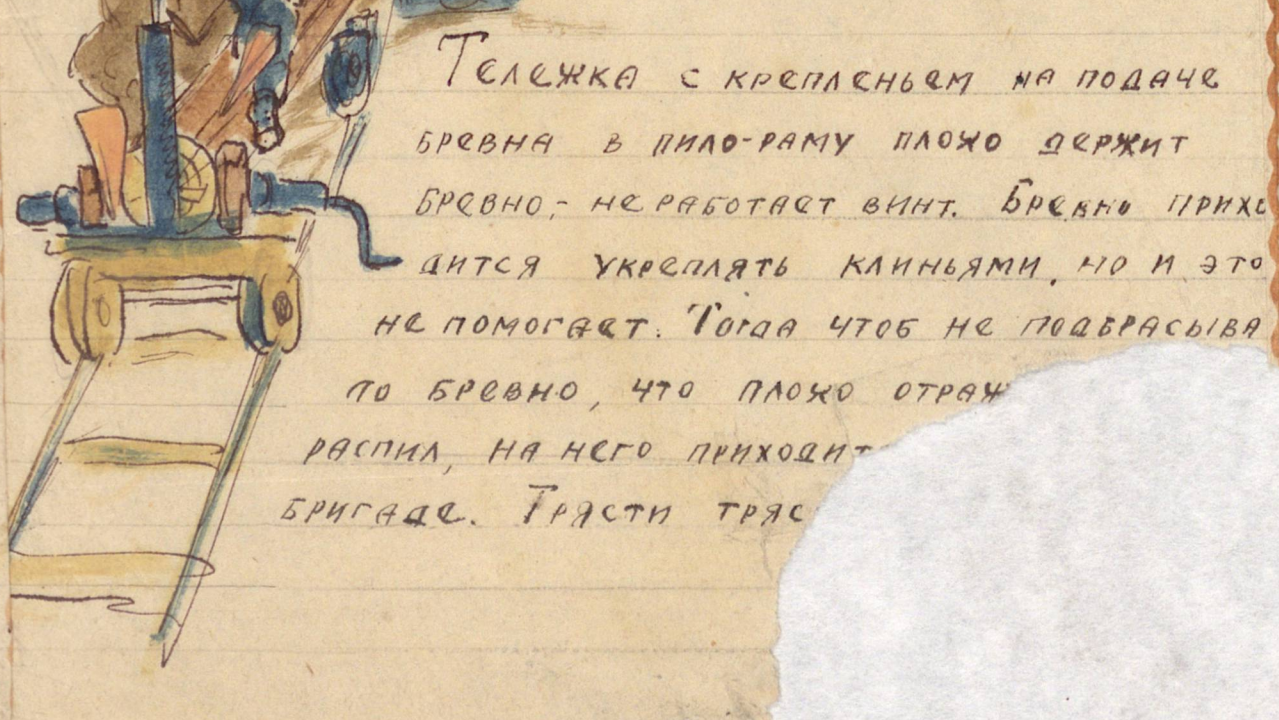 Тележка с крепленьем на подаче
бревна в пило-раму плохо держит
бревно,- не работает винт. Бревно прихо
дится укреплять клиньями, но и это
не помогает. Тогда чтоб не подбрасыва
ло бревно, что плохо отраж
распил, на него приходит
бригаде. Трясти тряс